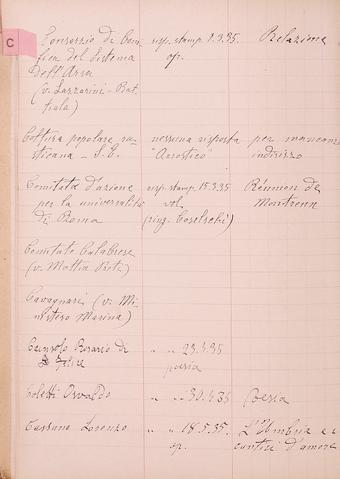 C
Consorzio di Bonifica del Sistema dell'Arsa (v. Lazzarini - Battiala) risp. stamp. 1.3.35. op. Relazione
popolare - S. E. nessuna risposta "Acrostico" per mancanza indirizzo
Comitato d'azione per la universalità di Roma risp. stamp. 15.3.35 vol. (ring. Coselschi) Réunion de Montreux
Comitato Calabrese (v. Mattia Preti)
Cavagnari (v. Ministero Marina)
Rosario di Felice " " 23.4.35 poesia
Coletti Osvaldo " " 30.4.35 Poesia
Cassano Lorenzo " " 18.5.35. op. L'Umbria e i cantici d'amore